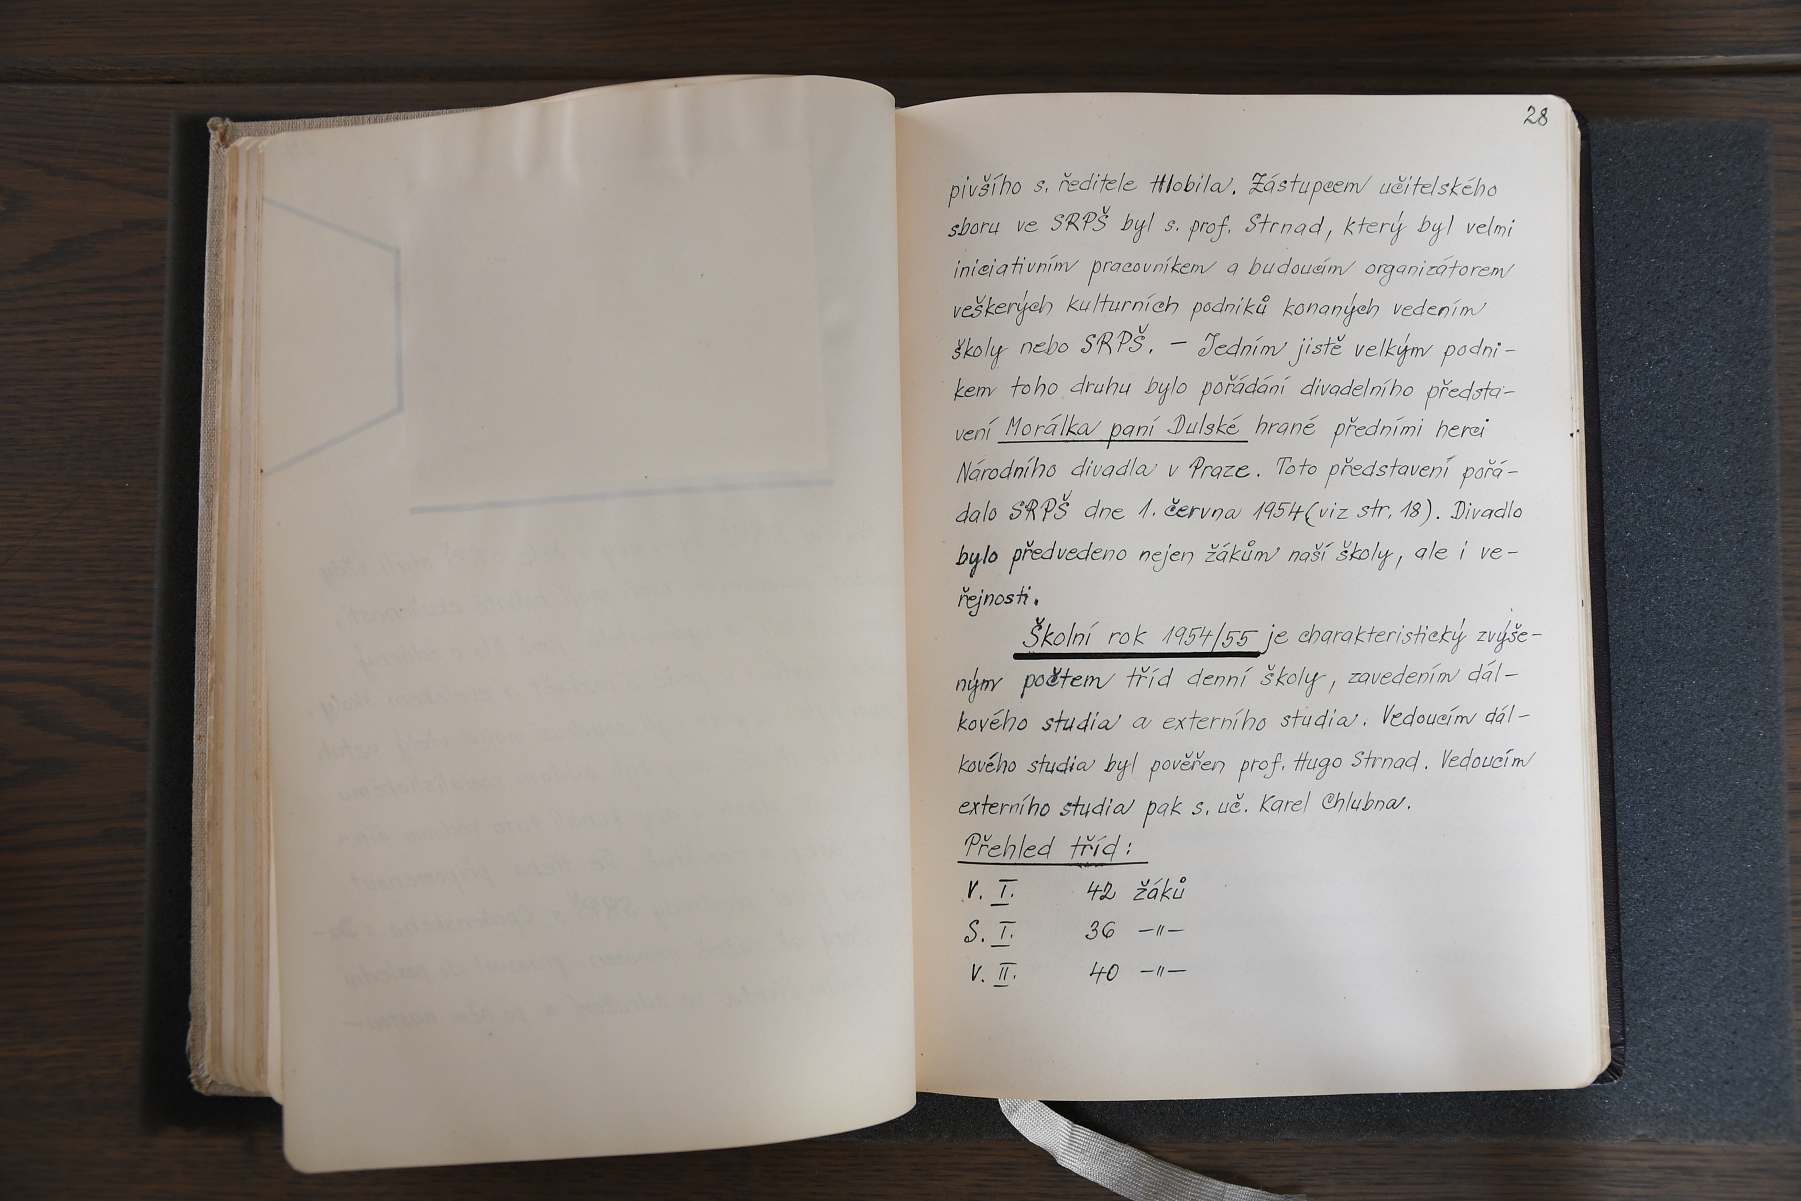 28
pivšího s. ředitele Hlobila. Zástupcem učitelského
sboru ve SRPŠ byl s. prof. Strnad, který byl velmi
iniciativním pracovníkem a budoucím organizátorem
veškerých kulturních podniků konaných vedením
školy nebo SRPŠ. — Jedním jistě velkým podni-
kem toho druhu bylo pořádání divadelního předsta-
vení Morálka paní Dulské hrané předními herci
Národního divadla v Praze. Toto představení pořá-
dalo SRPŠ dne 1. června 1954 (viz str. 18). Divadlo
bylo předvedeno nejen žákům naší školy, ale i ve-
řejnosti.
Školní rok 1954/55 je charakteristický zvýše-
ným počtem tříd denní školy, zavedením dál-
kového studia a externího studia. Vedoucím dál-
kového studia byl pověřen prof. Hugo Strnad. Vedoucím
externího studia pak s. uč. Karel Chlubna.
Přehled tříd:
V. I. 42 žáků
S. I. 36 —"—
V. II. 40 —"—